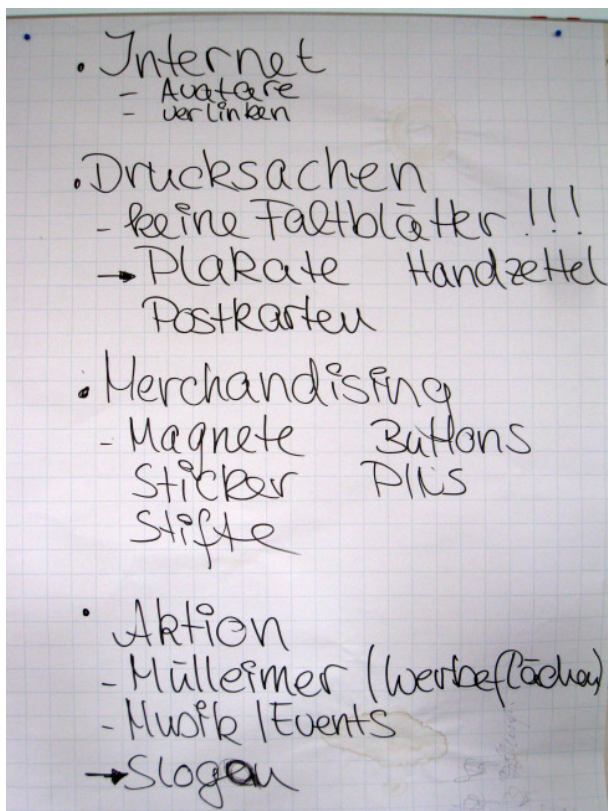 • Internet
- Avatare
- verlinken
• Drucksachen
- keine Faltblätter !!!
→ Plakate Handzettel
Postkarten
• Merchandising
- Magnete Buttons
Sticker Pins
Stifte
• Aktion
- Mülleimer (Werbeflächen)
- Musik / Events
→ Slogan